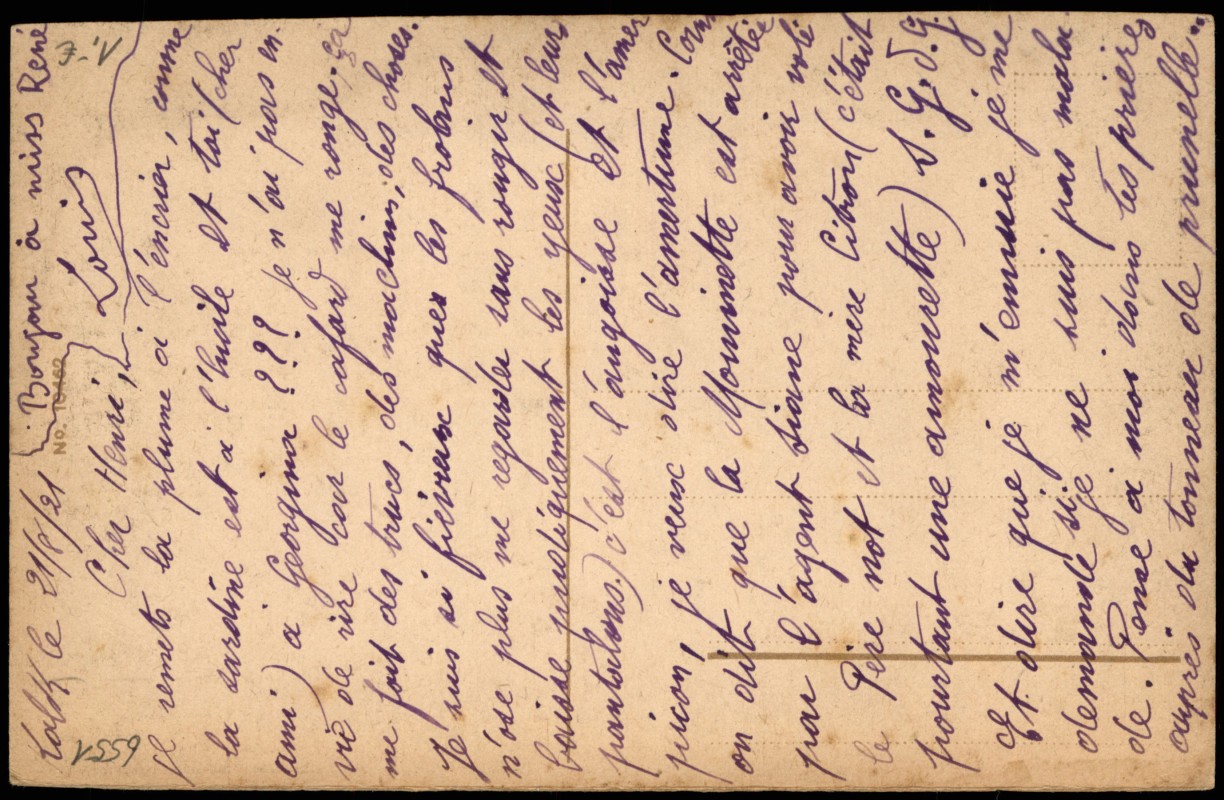 le 21/8/21
Bonjour à miss René
No. 10462
Louis
Cher Henri,
je remets la plume à l'encrier, comme
la sardine est à l'huile et toi (cher
ami) a Georgina ??? Je n'ai pas en
vie de rire car le cafard me ronge, ça
me fait des trucs, des machins, des choses.
Je suis si fiévreux que les frobus
n'ose plus me regarder sans rougir et
baisse pudiquement les yeux (et leurs
pantalons.) c'est l'angoisse et l'amer
picon, je veux dire l'amertume. Com
on dit que la Mouninette est arrêtée
par l'agent Siane pour avoir volé
le Père not et la mère Citron (c'était
pourtant une amourette) S.G.D.G.
Et dire que je m'ennuie je me
demande si je ne suis pas mala
de. Pense à moi dans tes prières
auprès du tonneau de prunelle.
6551